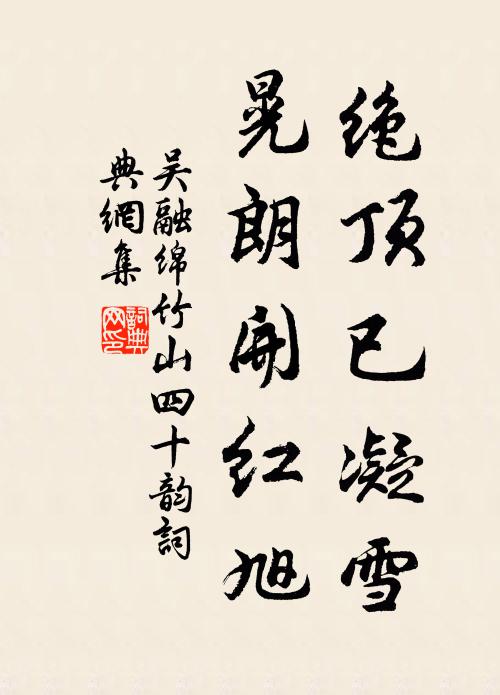 绝顶已凝雪
晃朗开红旭
吴融绵竹山四十韵词
典網集
詞典
网印